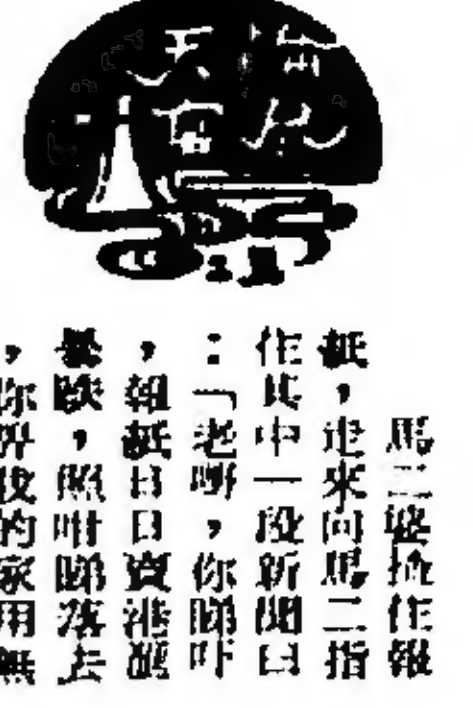 馬二婆揸住報
紙，走來向馬二指
住其中一段新聞曰
：「老嘢，你睇吓
，報紙日日賣港滙
暴跌，照咁睇落去
，你畀我的家用無